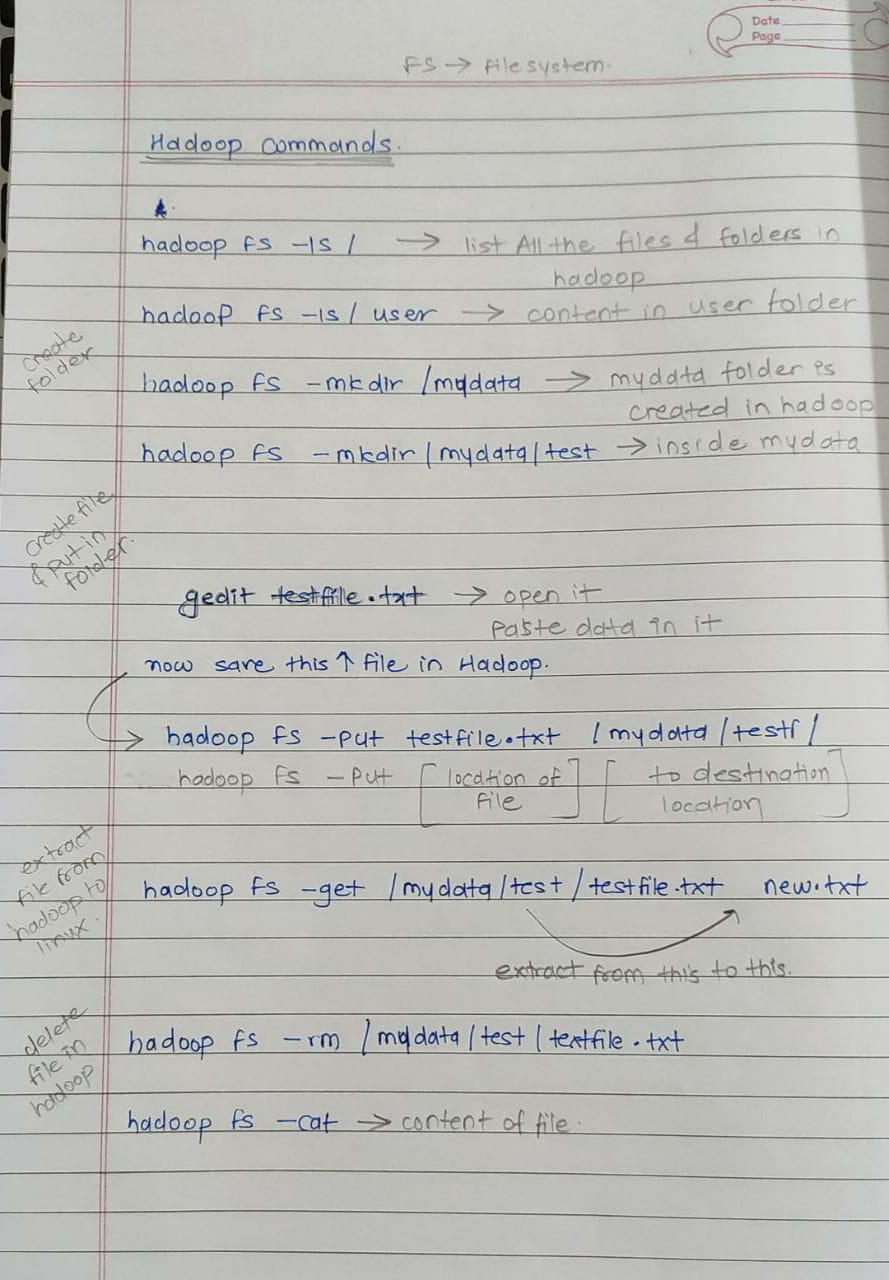 Date
Page
FS → file system.
Hadoop commands.
hadoop fs -ls / → list All the files & folders in
hadoop
hadoop fs -ls / user → content in user folder
create
folder
hadoop fs -mkdir /mydata → mydata folder is
created in hadoop
hadoop fs -mkdir /mydata/test → inside mydata
create file
& put in
folder.
gedit testfile.txt → open it
paste data in it
now save this ↑ file in Hadoop.
→ hadoop fs -put testfile.txt /mydata/test/
hadoop fs -put [location of [to destination
file] location]
extract
file from
hadoop to
linux.
hadoop fs -get /mydata/test/testfile.txt new.txt
extract from this to this.
delete
file in
hadoop
hadoop fs -rm /mydata/test/textfile.txt
hadoop fs -cat → content of file.